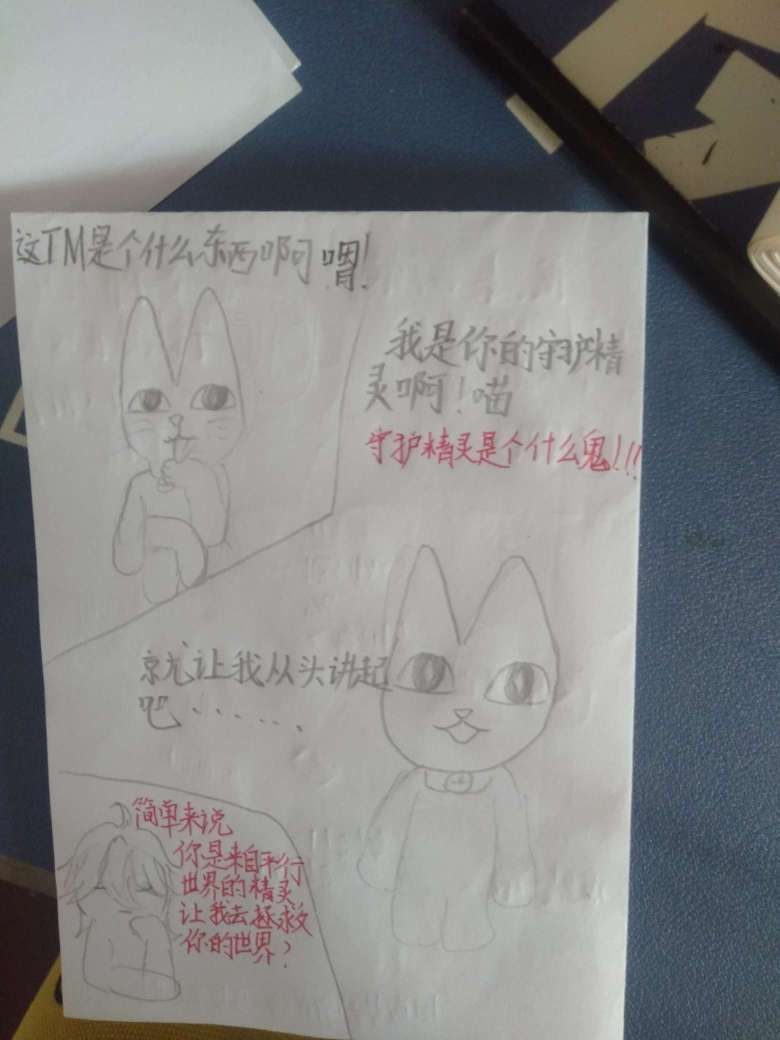 这TM是个什么东西啊喟!
我是你的守护精
灵啊!喵
守护精灵是个什么鬼!!!
就让我从头讲起
吧······
简单来说
你是来自平行
世界的精灵
让我去拯救
你的世界?